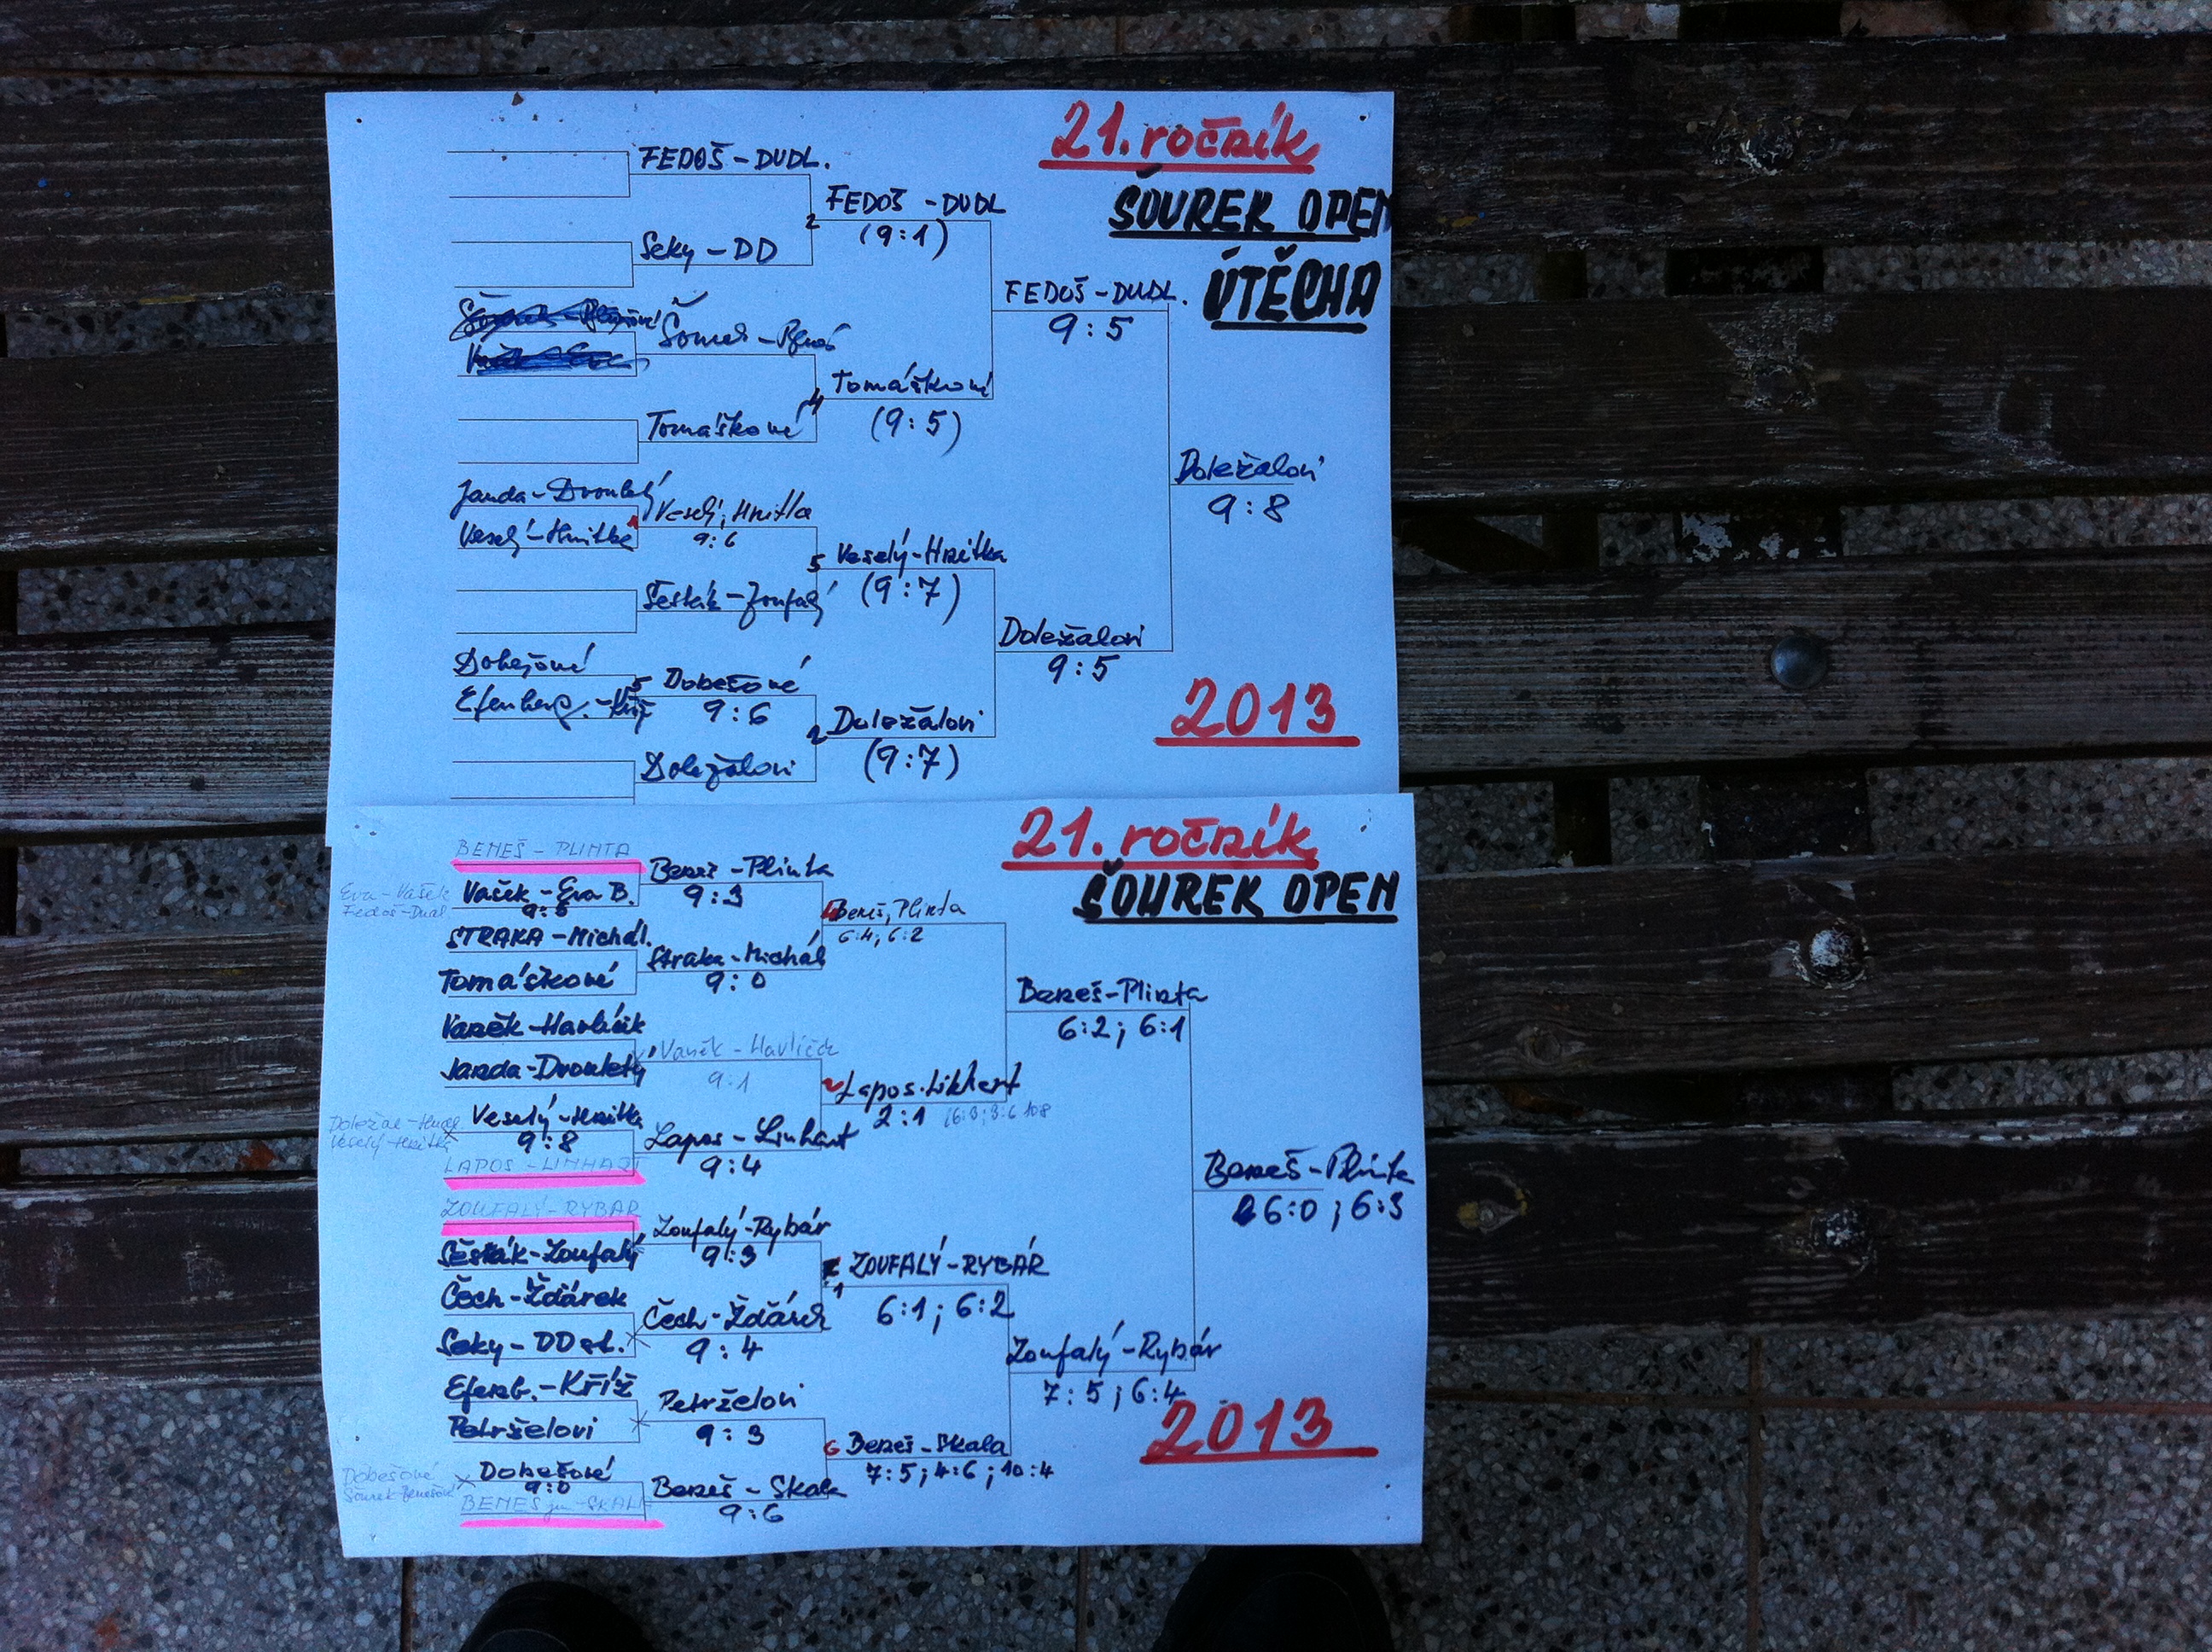 21. ročník
ŠOUREK OPEN
ÚTĚCHA
FEDOŠ - DUDL.
Seky - DD
Tomáškové
Janda - Dvouletý
Veselý - Hnitka
Šesták - Zoufalý
Dobešové
Efenberg. - Kříž
Doležalovi
Veselý, Hnitka
9:6
Dobešové
9:6
FEDOŠ - DUDL
(9:1)
Tomáškové
(9:5)
Veselý - Hnitka
(9:7)
Doležalovi
(9:7)
FEDOŠ - DUDL.
9:5
Doležalovi
9:5
Doležalovi
9:8
2013
21. ročník
ŠOUREK OPEN
BENEŠ - PLINTA
Eva - Vašek
Fedoš - Dudl
Vašek - Eva B.
9:5
STRAKA - Michál.
Tomáškové
Vaněk - Havlíček
Janda - Dvouletý
Veselý - Hnitka
9:8
Veselý - Hnitka
LAPOS - LINHART
ZOUFALÝ - RYBÁR
Šesták - Zoufalý
Čech - Žďárek
Seky - DD st.
Efenb. - Kříž
Petrželovi
Dobešové
Dobešové
9:0
BENEŠ jun - SKALA
Beneš - Plinta
9:3
Straka - Michál
9:0
Vaněk - Havlíček
9:1
Lapos - Linhart
9:4
Zoufalý - Rybár
9:3
Čech - Žďárek
9:4
Petrželovi
9:3
Beneš - Skala
9:6
Beneš, Plinta
6:4; 6:2
Lapos - Linhart
2:1
ZOUFALÝ - RYBÁR
6:1; 6:2
Beneš - Skala
7:5; 4:6; 10:4
Beneš - Plinta
6:2; 6:1
Zoufalý - Rybár
7:5; 6:4
Beneš - Plinta
6:0; 6:3
2013